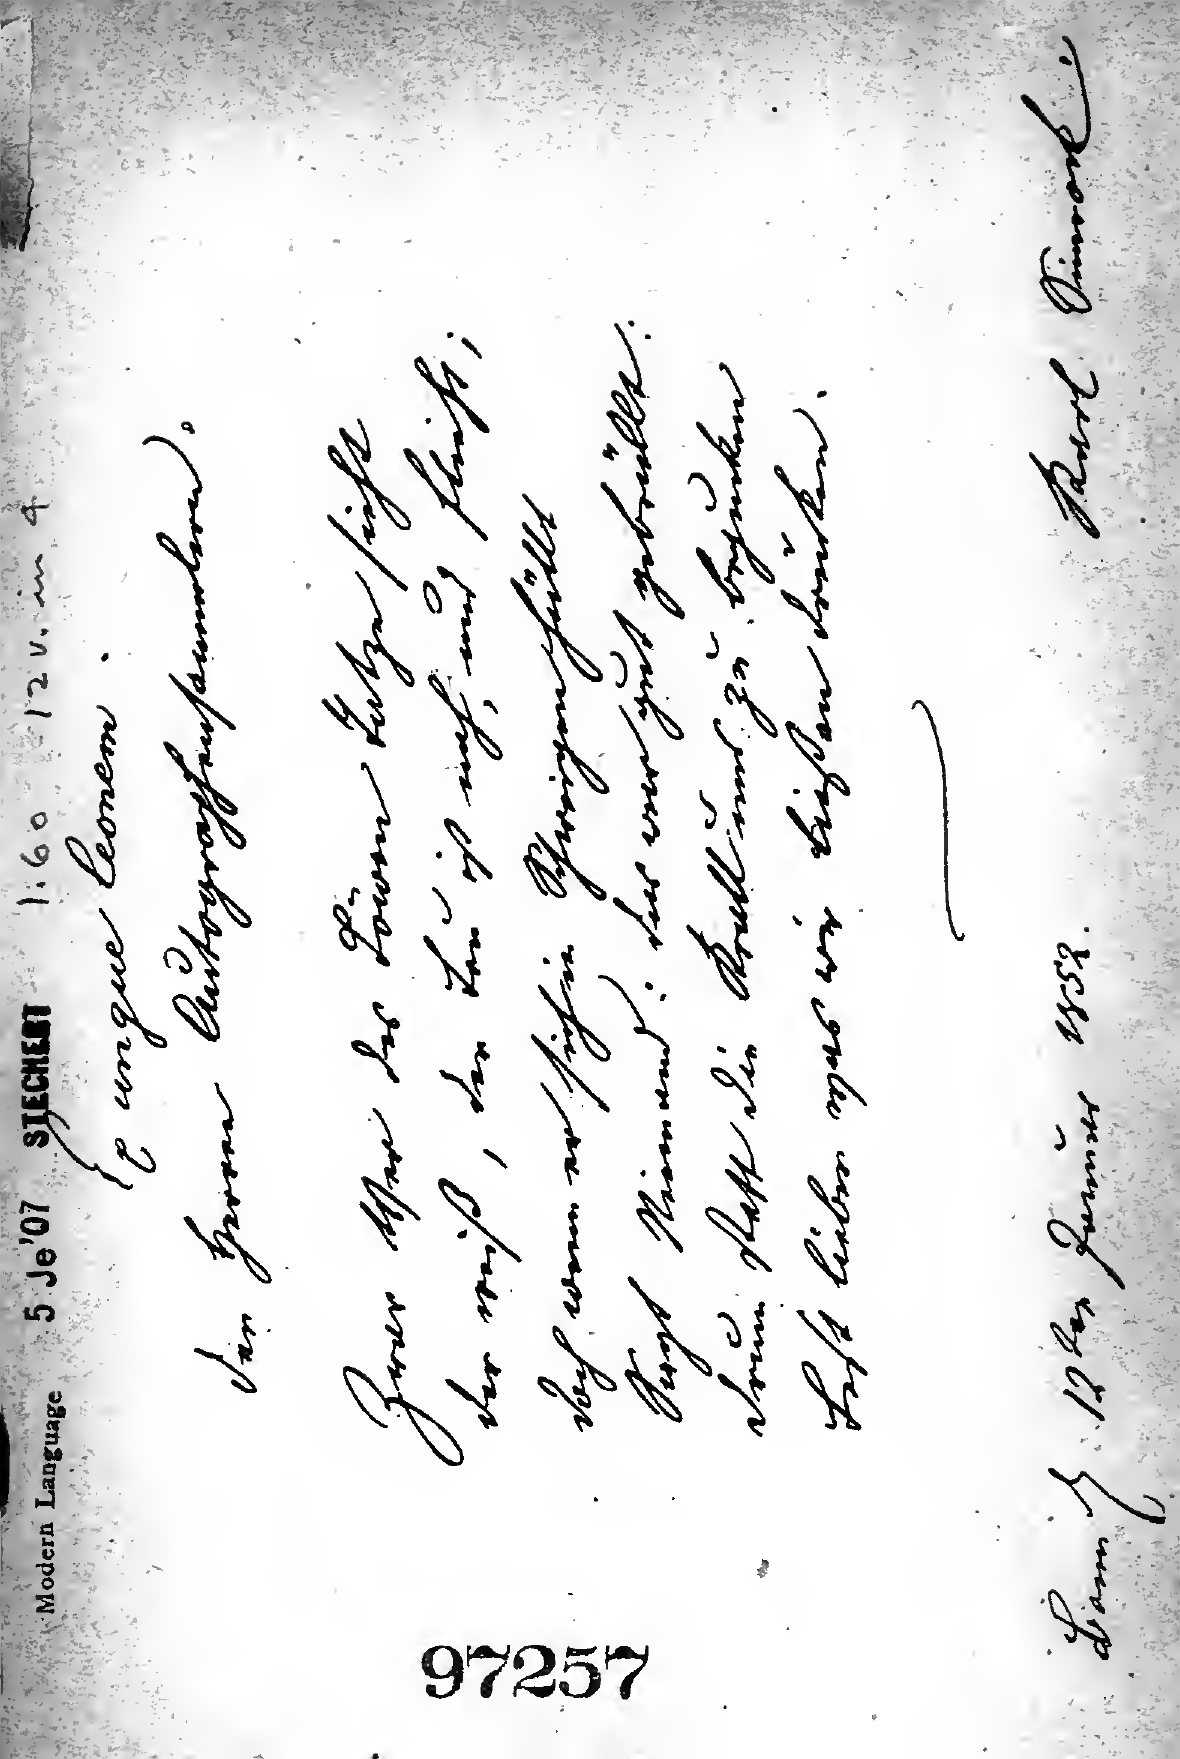 Modern Language 5 Je '07 STECHERT 1.60 12 v. in 4
E ungue leonem.
Den Herren Autographensammlern.
Zwar Wer des Löwen Tatze sieht
Der weiß, der Leu ist nah, und flieht;
Doch wenn er sich in Schweigen hüllt
Sagt Niemand: das war gut gebrüllt.
Drum statt die Krallen uns zu begucken
Laßt lieber was wir ließen drucken.
Bonn 12ten Januar 1852.
Karl Simrock
97257